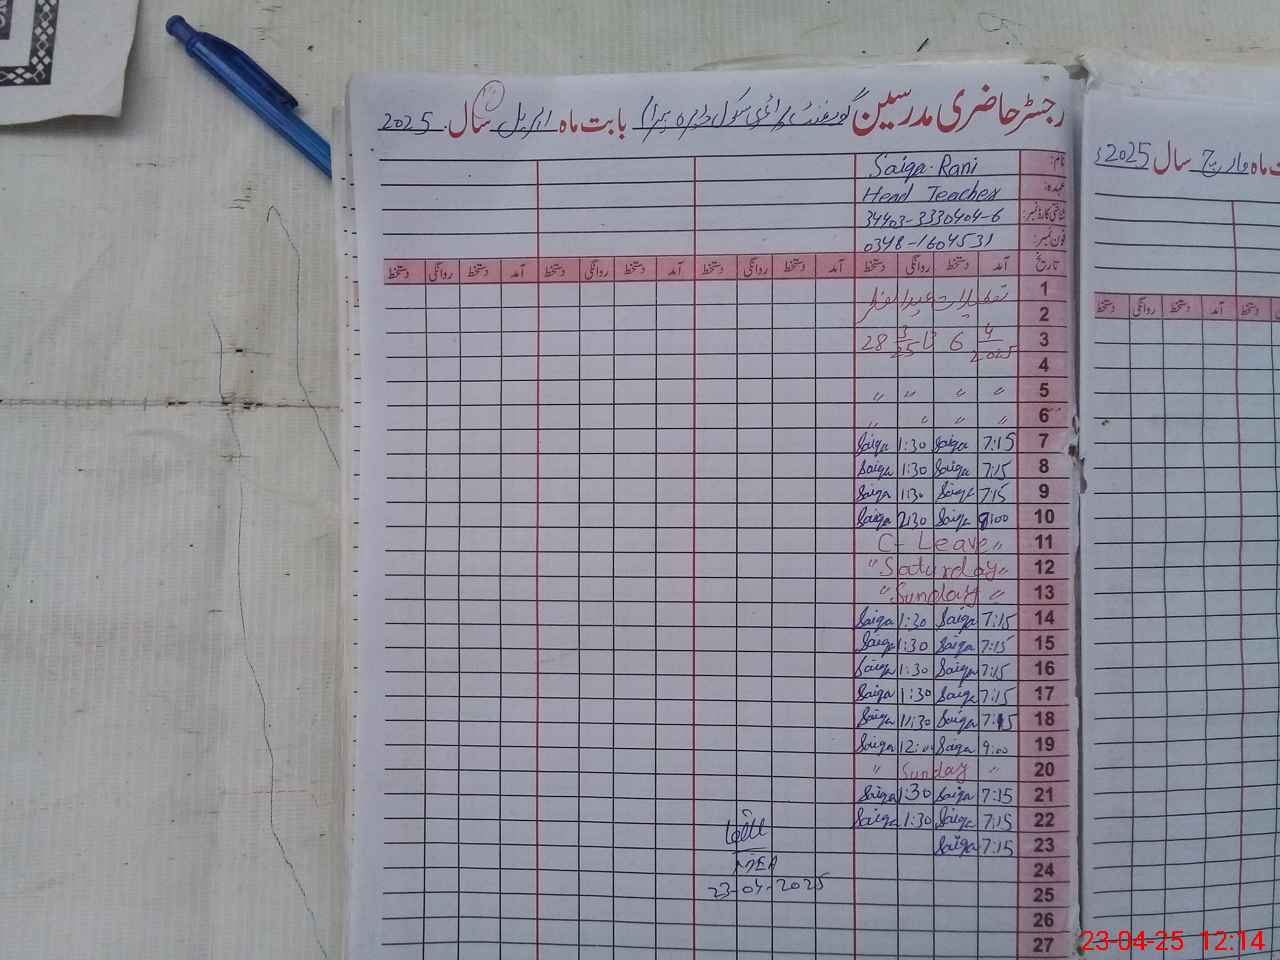 رجسٹر حاضری مدرسین گورنمنٹ پرائمری سکول بابت ماہ اپریل سال 2025
نام: Saiqa Rani
عہدہ: Head Teacher
شناختی کارڈ نمبر: 34403-3330404-6
فون نمبر: 0348-1604531
تاریخ آمد دستخط روانگی دستخط آمد دستخط روانگی دستخط آمد دستخط روانگی دستخط آمد دستخط روانگی دستخط
1 تعطیلات عید الفطر
2
3 28 3/25 تا 6 4/2025
4
5 " " " "
6 " " " "
7 7:15 Saiqa 1:30 Saiqa
8 7:15 Saiqa 1:30 Saiqa
9 7:15 Saiqa 1:30 Saiqa
10 9:00 Saiqa 2:30 Saiqa
11 C- Leave "
12 " Saturday "
13 " Sunday "
14 7:15 Saiqa 1:30 Saiqa
15 7:15 Saiqa 1:30 Saiqa
16 7:15 Saiqa 1:30 Saiqa
17 7:15 Saiqa 1:30 Saiqa
18 7:15 Saiqa 11:30 Saiqa
19 9:00 Saiqa 12:00 Saiqa
20 " Sunday "
21 7:15 Saiqa 1:30 Saiqa
22 7:15 Saiqa 1:30 Saiqa
23 7:15 Saiqa
24
25
26
27
MEA
23-04-2025
ماہ مارچ سال 2025ء
دستخط روانگی دستخط آمد دستخط
23-04-25 12:14